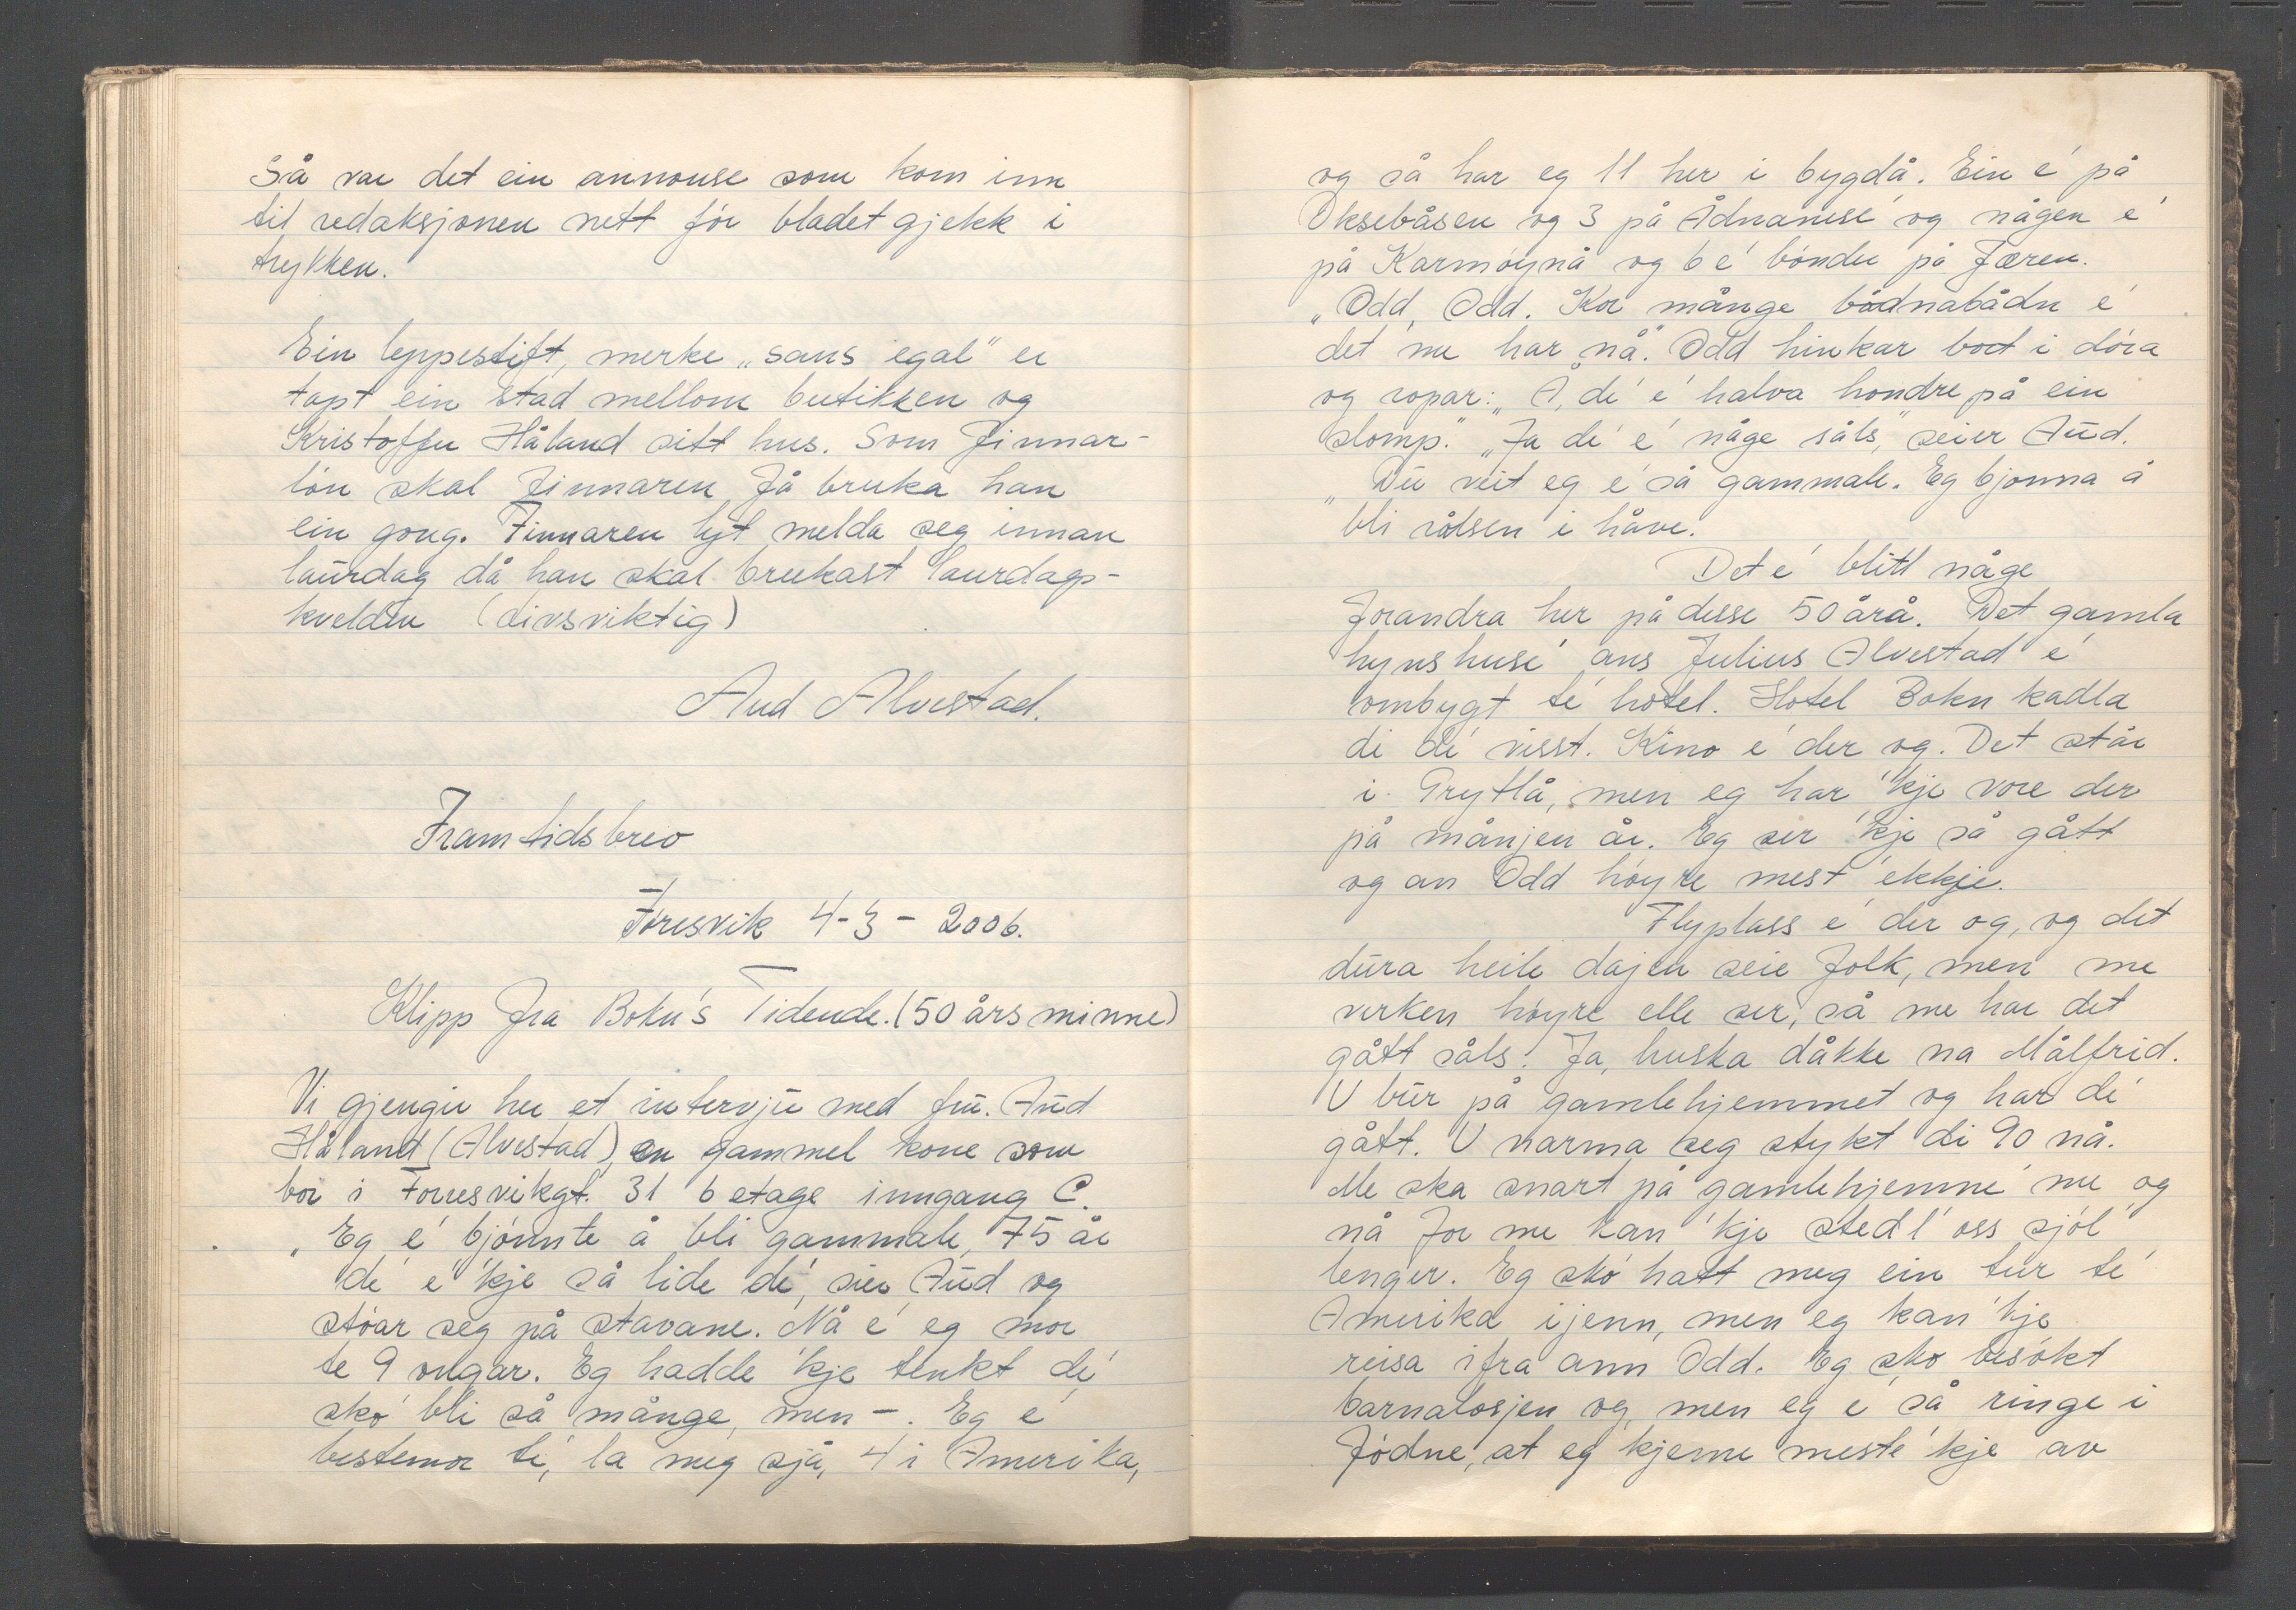 Så var det ein annonse som kom inn
til redaksjonen nett før bladet gjekk i
trykken.
Ein leppestift, merke „sans egal" er
tapt ein stad mellom butikken og
Kristoffer Håland sitt hus. Som finnar-
løn skal finnaren få bruka han
ein gong. Finnaren lyt melda seg innan
laurdag då han skal brukast laurdags-
kvelden (livsviktig)
Aud Alvestad.
Framtidsbrev
Føresvik 4-3-2006.
Klipp fra Bokn's Tidende. (50 års minne)
Vi gjengir her et intervju med fru. Aud
Håland (Alvestad), en gammel kone som
bor i Forresvikgt. 31 6 etage inngang C.
„Eg é bjønnte å bli gammale, 75 år
dé é 'kje så lide dé, sier Aud og
støar seg på stavane. Nå é eg mor
te 9 ongar. Eg hadde 'kje tenkt dé
skó bli så månge, men -. Eg é
bestemor té, la meg sjå, 4 i Amerika,
og så har eg 11 her i bygdå. Ein é på
Oksebåsen og 3 på Ådnanesé og någen é
på Karmøynå og 6 é bønder på Jæren.
„Odd, Odd. Kor månge bådnabådn é
det me har nå". Odd hinkar bort i døra
og ropar: „Å, dé é halva hondre på ein
slomp." „Ja dé é någe såls", seier Aud.
„Du veit eg é så gammale. Eg bjønna å
bli rålsen i håve.
Det é blitt någe
forandra her på desse 50 årå. Det gamla
hynshusé ans Julius Alvestad é
ombygt té hotel. Hotel Bokn kadla
di dé visst. Kino é der og. Det står
i Prytlå, men eg har 'kje vore der
på månjen år. Eg ser 'kje så gått
og an Odd høyre mest ékkje.
Flyplass é der og, og det
dura heile dajen seie folk, men me
verken høyre elle ser, så me har det
gått såls! Ja, huska dåkke na Målfrid.
U bur på gamlehjemmet og har dé
gått. U narma seg stykt di 90 nå.
Me ska snart på gamlehjemmé me og
nå for me kan 'kje stedl' oss sjøl
lenger. Eg skó hatt meg ein tur té
Amerika ijenn, men eg kan 'kje
reisa ifra ann Odd. Eg sko besøkt
barnalosjen og, men eg é så ringe i
fødne, at eg kjeme mesté 'kje av